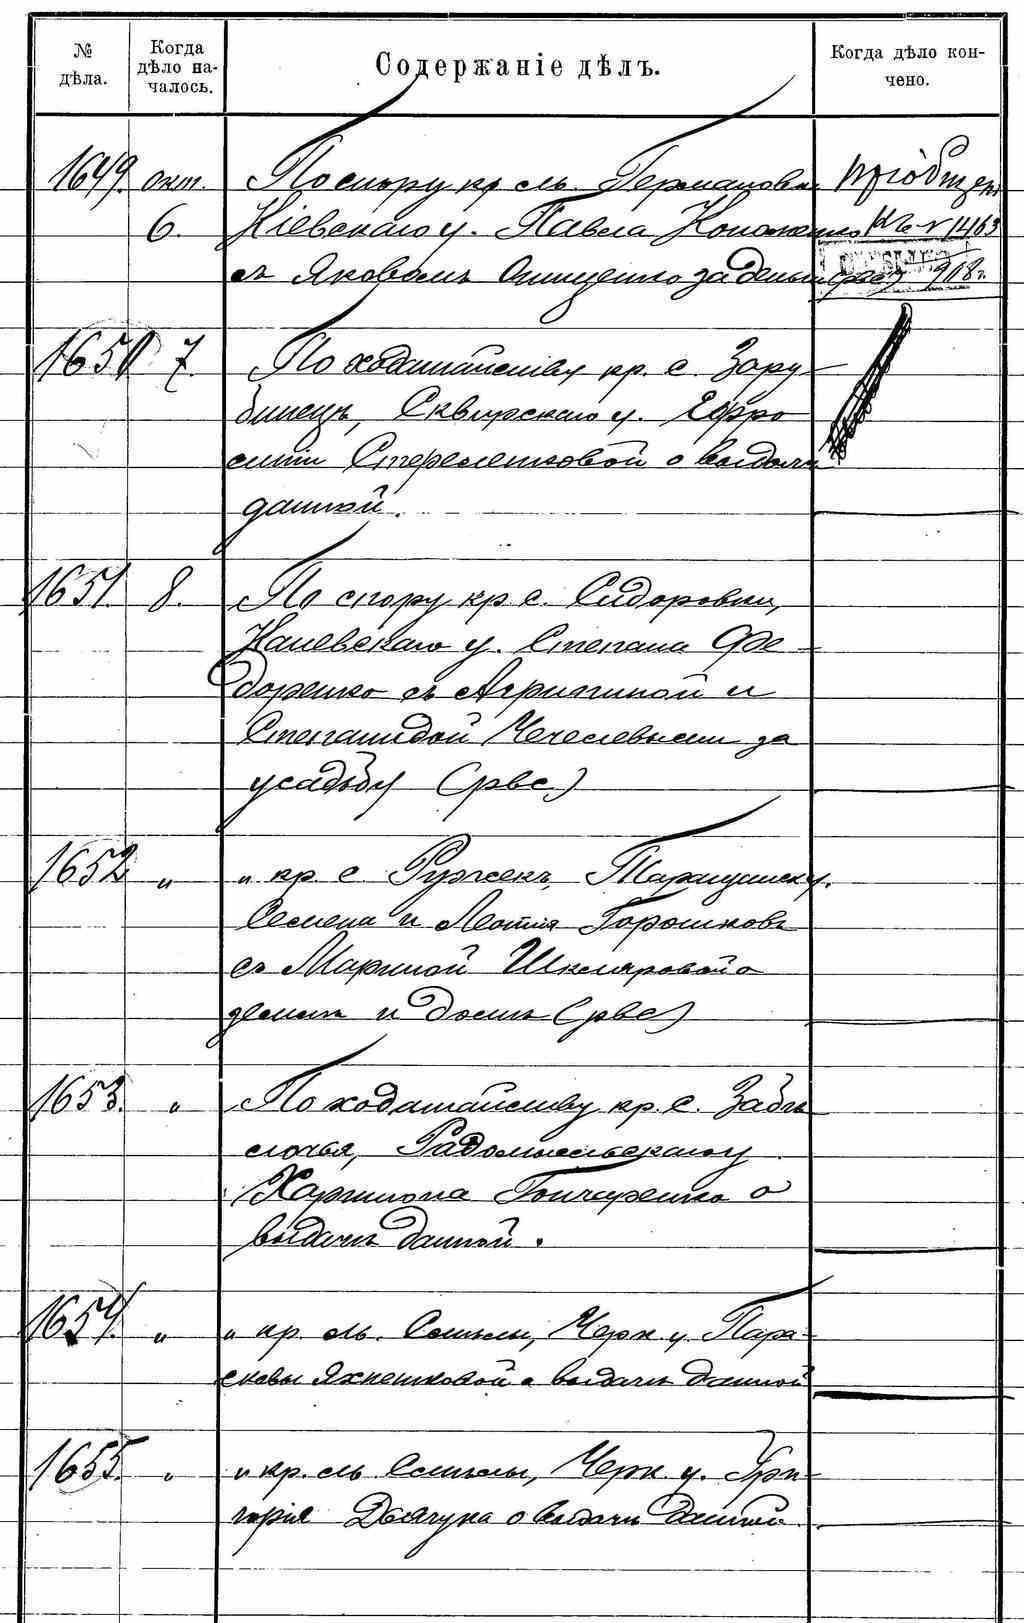 № дѣла.
Когда дѣло на-
чалось.
Содержаніе дѣлъ.
Когда дѣло кон-
чено.
1649. окт. По спору кр. м. Германовки пріобщен
6. Кіевскаго у. Павла Кононенко къ № 1463
съ Яковомъ Онищенко за деньги (рвс) 908 г.
1650 7. По ходатайству кр. с. Зару-
бинецъ, Сквирскаго у. Ефро
синіи Стременковой о выдачѣ
данной.
1651. 8. По спору кр. с. Сидоровки,
Каневскаго у. Степана Фе-
доренко съ Агрипиной и
Степанидой Чечелевыми за
усадьбу (рвс)
1652 „ „ кр. с. Ружекъ, Таращанск. у.
Семена и Горошковъ
съ Мариной Шкляровой о
земли и домъ (рвс)
1653. „ По ходатайству кр. с. Забѣ
лочья, Радомысльскаго у.
Харитона Гончаренко о
выдачѣ данной.
1654. „ „ кр. м. Смѣлы, Черк. у. Пара-
сковьи Яхненковой о выдачѣ данной
1655. „ „ кр. м. Смѣлы, Черк. у. Гри-
горія о выдачѣ данной.